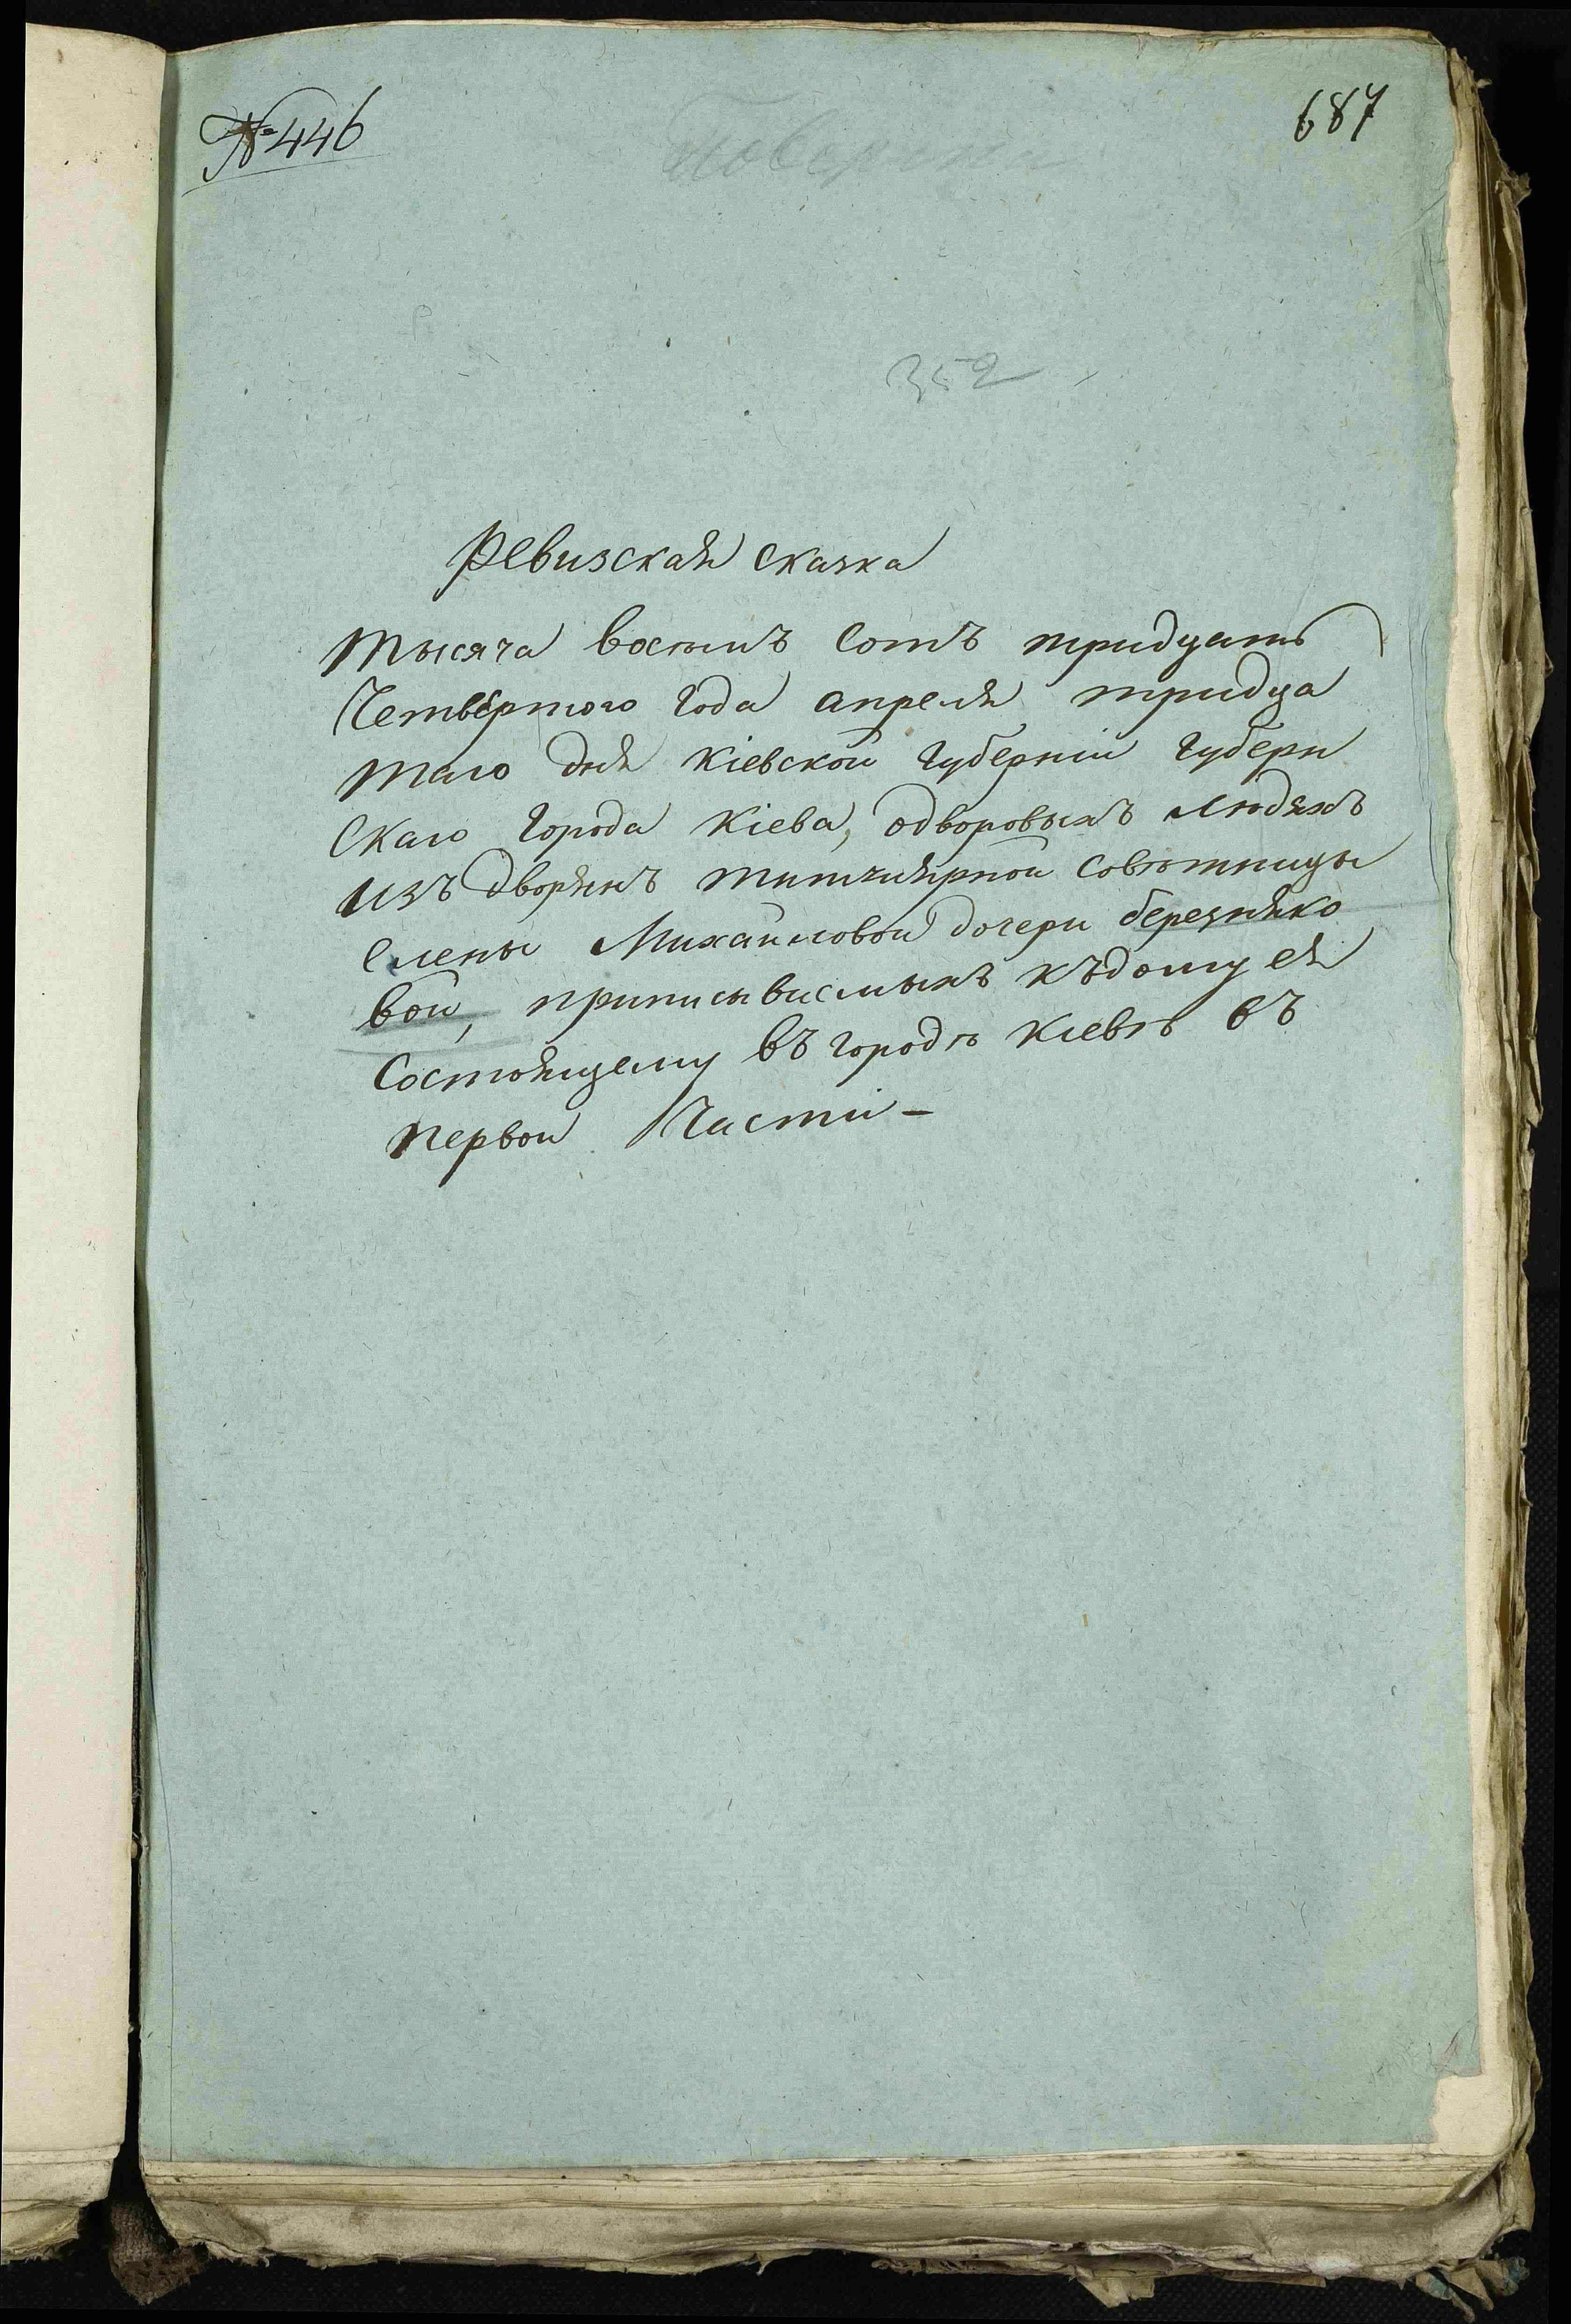 № 446
687
352
Ревизская сказка
тысяча восемъ сотъ тридцать
четвертого года апреля тридца
таго дня Кіевской губерніи губерн
скаго города Кіева, одворовыхъ людяхъ
изъ дворянъ титулярной советницы
Елены Михайловой дочери березняко
вой, приписываемыхъ къдому ея
состоящему въ городѣ Кіевѣ въ
первой Части -